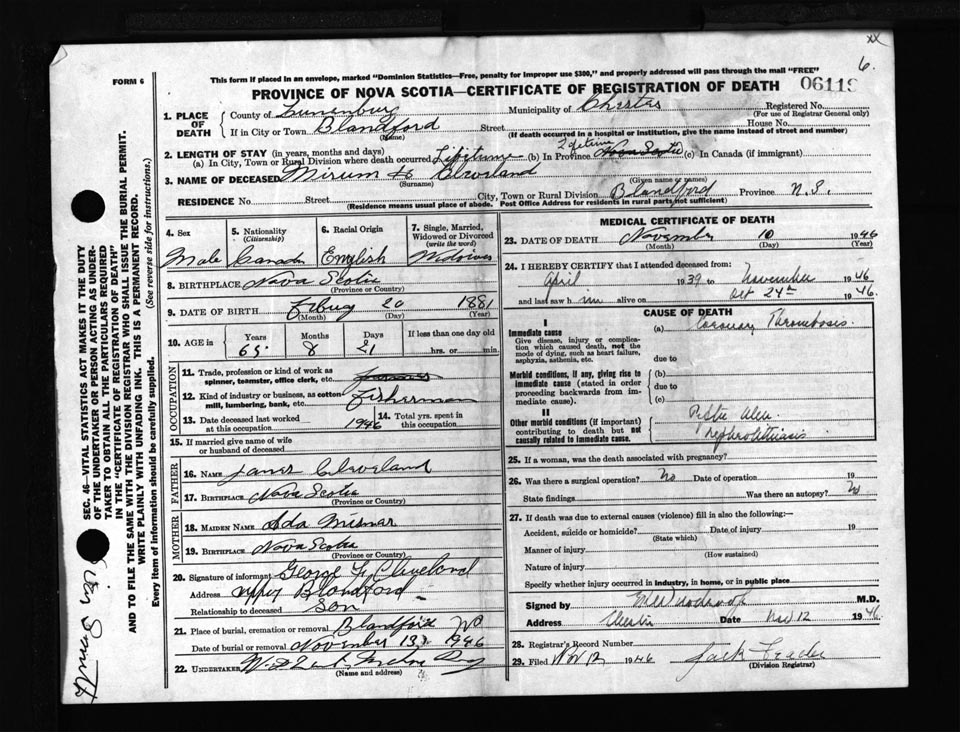 xx
6.
FORM 6
This form if placed in an envelope, marked "Dominion Statistics—Free, penalty for improper use $300," and properly addressed will pass through the mail "FREE"
PROVINCE OF NOVA SCOTIA—CERTIFICATE OF REGISTRATION OF DEATH 06119
1. PLACE OF DEATH
County of Lunenburg Municipality of Chester Registered No.
(For use of Registrar General only)
If in City or Town Blandford Street House No.
(Name) (If death occurred in a hospital or institution, give the name instead of street and number)
2. LENGTH OF STAY (in years, months and days)
(a) In City, Town or Rural Division where death occurred Lifetime (b) In Province Lifetime Nova Scotia (c) In Canada (if immigrant)
3. NAME OF DECEASED Cleveland
(Surname) (Given name or names)
RESIDENCE No. Street City, Town or Rural Division Blandford Province N.S.
(Residence means usual place of abode. Post Office Address for residents in rural parts not sufficient)
4. Sex Male
5. Nationality (Citizenship) Canada
6. Racial Origin English
7. Single, Married, Widowed or Divorced (write the word)
8. BIRTHPLACE Nova Scotia
(Province or Country)
9. DATE OF BIRTH 20 1881
(Month) (Day) (Year)
10. AGE in Years Months Days If less than one day old
65 8 21 hrs. or min.
OCCUPATION
11. Trade, profession or kind of work as spinner, teamster, office clerk, etc.
12. Kind of industry or business, as cotton mill, lumbering, bank, etc. Fisherman
13. Date deceased last worked at this occupation 1946
14. Total yrs. spent in this occupation
15. If married give name of wife or husband of deceased
FATHER
16. NAME James Cleveland
17. BIRTHPLACE Nova Scotia
(Province or Country)
MOTHER
18. MAIDEN NAME Ada
19. BIRTHPLACE Nova Scotia
(Province or Country)
20. Signature of informant George Cleveland
Address Blandford
Relationship to deceased Son
21. Place of burial, cremation or removal Blandford
Date of burial or removal November 13 1946
22. UNDERTAKER
(Name and address)
MEDICAL CERTIFICATE OF DEATH
23. DATE OF DEATH November 10 1946
(Month) (Day) (Year)
24. I HEREBY CERTIFY that I attended deceased from:
April 1939 to November 1946
and last saw him alive on Oct 24th 1946.
CAUSE OF DEATH
I
Immediate cause (a) Coronary Thrombosis.
Give disease, injury or complication which caused death, not the mode of dying, such as heart failure, asphyxia, asthenia, etc.
due to
Morbid conditions, if any, giving rise to immediate cause (stated in order proceeding backwards from immediate cause).
(b)
due to
(c)
II
Other morbid conditions (if important) contributing to death but not causally related to immediate cause.
Peptic Ulcer
nephrolithiasis
25. If a woman, was the death associated with pregnancy?
26. Was there a surgical operation? No Date of operation 19
State findings Was there an autopsy? No
27. If death was due to external causes (violence) fill in also the following:—
Accident, suicide or homicide? Date of injury 19
(State which)
Manner of injury
(How sustained)
Nature of injury
Specify whether injury occurred in industry, in home, or in public place
Signed by M.D.
Address Chester Date Nov. 12 1946
28. Registrar's Record Number
29. Filed Nov 12 1946 Jack
(Division Registrar)
SEC. 46—VITAL STATISTICS ACT MAKES IT THE DUTY
OF THE UNDERTAKER OR PERSON ACTING AS UNDER-
TAKER TO OBTAIN ALL THE PARTICULARS REQUIRED
IN THE "CERTIFICATE OF REGISTRATION OF DEATH"
AND TO FILE THE SAME WITH THE DIVISION REGISTRAR WHO SHALL ISSUE THE BURIAL PERMIT.
WRITE PLAINLY WITH UNFADING INK. THIS IS A PERMANENT RECORD.
Every item of information should be carefully supplied. (See reverse side for instructions.)